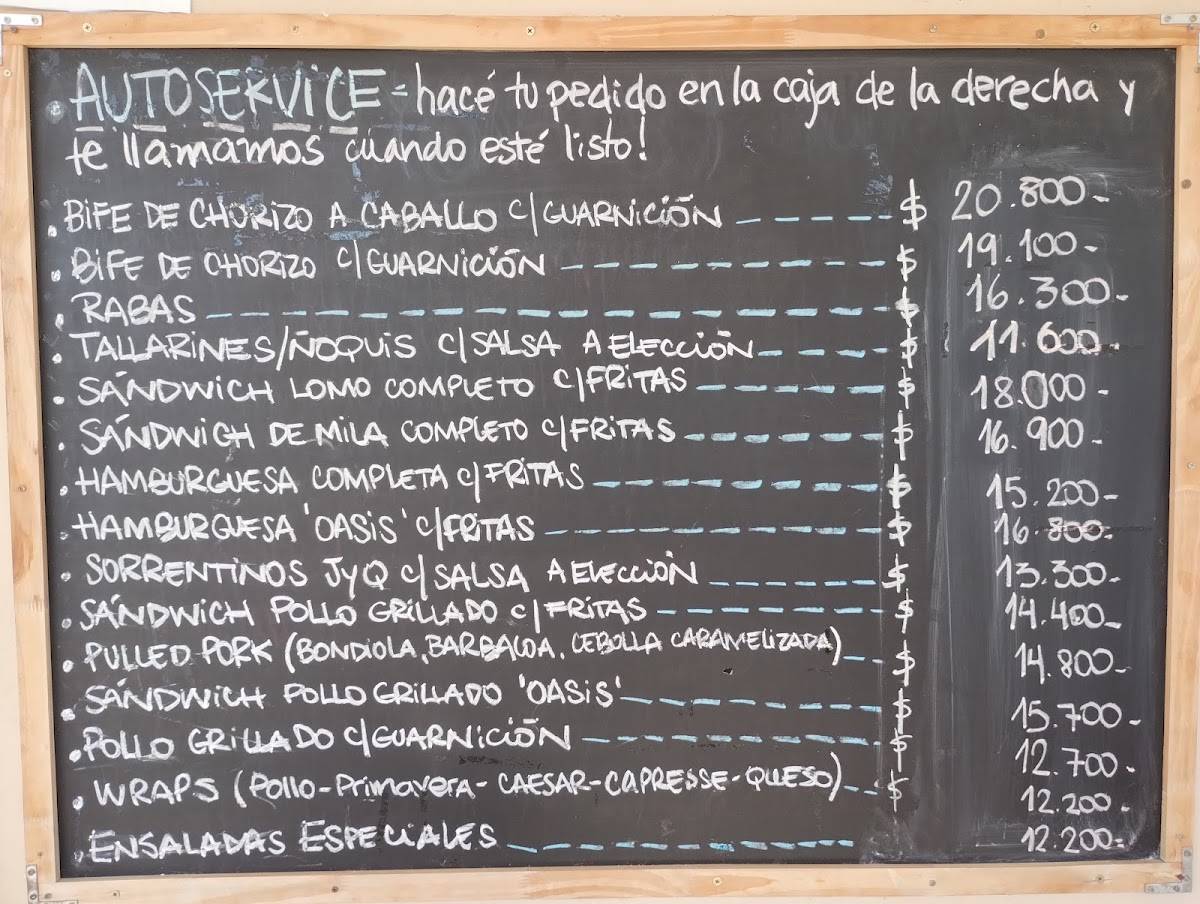 AUTOSERVICE = hacé tu pedido en la caja de la derecha y
te llamamos cuando esté listo!
. BIFE DE CHORIZO A CABALLO C/GUARNICIÓN ------ $ 20.800-
. BIFE DE CHORIZO C/GUARNICIÓN ------------ $ 19.100-
. RABAS ------------------------ $ 16.300-
. TALLARINES/ÑOQUIS C/SALSA A ELECCIÓN ----- $ 11.600-
. SÁNDWICH LOMO COMPLETO C/FRITAS ------- $ 18.000-
. SÁNDWICH DE MILA COMPLETO C/FRITAS ------- $ 16.900-
. HAMBURGUESA COMPLETA C/FRITAS ---------- $ 15.200-
. HAMBURGUESA 'OASIS' C/FRITAS ------------ $ 16.800-
. SORRENTINOS JyQ C/SALSA A ELECCIÓN ------ $ 13.300-
. SÁNDWICH POLLO GRILLADO C/FRITAS -------- $ 14.400-
. PULLED PORK (BONDIOLA, BARBACOA, CEBOLLA CARAMELIZADA) -- $ 14.800-
. SÁNDWICH POLLO GRILLADO 'OASIS' --------- $ 15.700-
. POLLO GRILLADO C/GUARNICIÓN ----------- $ 12.700-
. WRAPS (Pollo-Primavera-CAESAR-CAPRESSE-QUESO) -- $ 12.200-
. ENSALADAS ESPECIALES ------------- 12.200-